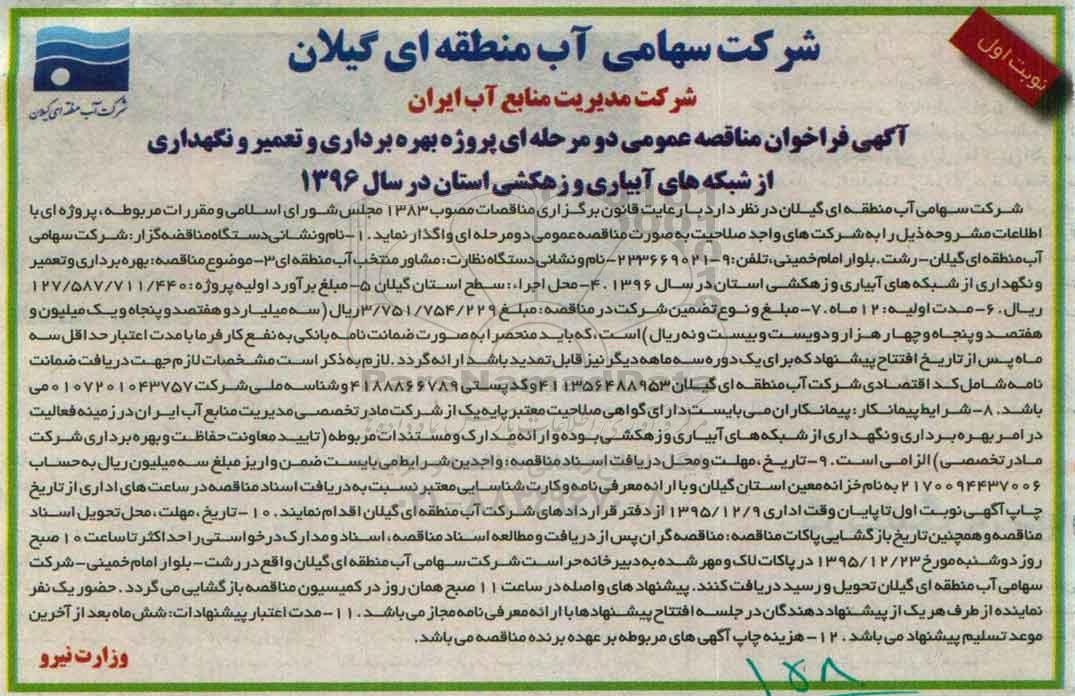 شرکت سهامی آب منطقه ای گیلان
نوبت اول
شرکت آب منطقه ای گیلان
شرکت مدیریت منابع آب ایران
آگهی فراخوان مناقصه عمومی دو مرحله ای پروژه بهره برداری و تعمیر و نگهداری
از شبکه های آبیاری و زهکشی استان در سال ۱۳۹۶
شرکت سهامی آب منطقه ای گیلان در نظر دارد با رعایت قانون برگزاری مناقصات مصوب ۱۳۸۳ مجلس شورای اسلامی و مقررات مربوطه، پروژه ای با
اطلاعات مشروحه ذیل را به شرکت های واجد صلاحیت به صورت مناقصه عمومی دو مرحله ای واگذار نماید. ۱- نام و نشانی دستگاه مناقصه گزار: شرکت سهامی
آب منطقه ای گیلان- رشت، بلوار امام خمینی، تلفن: ۹-۳۳۶۶۹۰۲۱ ۲- نام و نشانی دستگاه نظارت: مشاور منتخب آب منطقه ای ۳- موضوع مناقصه: بهره برداری و تعمیر
و نگهداری از شبکه های آبیاری و زهکشی استان در سال ۱۳۹۶. ۴- محل اجراء: سطح استان گیلان ۵- مبلغ برآورد اولیه پروژه: ۱۲۷/۵۸۷/۷۱۱/۴۴۰
ریال. ۶- مدت اولیه: ۱۲ ماه. ۷- مبلغ و نوع تضمین شرکت در مناقصه: مبلغ ۳/۷۵۱/۷۵۴/۲۲۹ ریال (سه میلیارد و هفتصد و پنجاه و یک میلیون و
هفتصد و پنجاه و چهار هزار و دویست و بیست و نه ریال) است، که باید منحصرا به صورت ضمانت نامه بانکی به نفع کارفرما با مدت اعتبار حداقل سه
ماه پس از تاریخ افتتاح پیشنهاد که برای یک دوره سه ماهه دیگر نیز قابل تمدید باشد ارائه گردد. لازم به ذکر است مشخصات لازم جهت دریافت ضمانت
نامه شامل کد اقتصادی شرکت آب منطقه ای گیلان ۴۱۱۳۵۶۴۸۸۹۵۳ و کد پستی ۴۱۸۸۸۶۶۷۸۹ و شناسه ملی شرکت ۰۱۰۷۲۰۱۰۴۳۷۵۷ می
باشد. ۸- شرایط پیمانکار: پیمانکاران می بایست دارای گواهی صلاحیت معتبر پایه یک از شرکت مادر تخصصی مدیریت منابع آب ایران در زمینه فعالیت
در امر بهره برداری و نگهداری از شبکه های آبیاری و زهکشی بوده و ارائه مدارک و مستندات مربوطه (تایید معاونت حفاظت و بهره برداری شرکت
مادر تخصصی) الزامی است. ۹- تاریخ، مهلت و محل دریافت اسناد مناقصه: واجدین شرایط می بایست ضمن واریز مبلغ سه میلیون ریال به حساب
۲۱۷۰۰۹۴۴۳۷۰۰۶ به نام خزانه معین استان گیلان و با ارائه معرفی نامه و کارت شناسایی معتبر نسبت به دریافت اسناد مناقصه در ساعت های اداری از تاریخ
چاپ آگهی نوبت اول تا پایان وقت اداری ۱۳۹۵/۱۲/۹ از دفتر قراردادهای شرکت آب منطقه ای گیلان اقدام نمایند. ۱۰- تاریخ، مهلت، محل تحویل اسناد
مناقصه و همچنین تاریخ بازگشایی پاکات مناقصه: مناقصه گران پس از دریافت و مطالعه اسناد مناقصه، اسناد و مدارک درخواستی را حداکثر تا ساعت ۱۰ صبح
روز دوشنبه مورخ ۱۳۹۵/۱۲/۲۳ در پاکات لاک و مهر شده به دبیرخانه حراست شرکت سهامی آب منطقه ای گیلان واقع در رشت- بلوار امام خمینی- شرکت
سهامی آب منطقه ای گیلان تحویل و رسید دریافت کنند. پیشنهادهای واصله در ساعت ۱۱ صبح همان روز در کمیسیون مناقصه بازگشایی می گردد. حضور یک نفر
نماینده از طرف هر یک از پیشنهاد دهندگان در جلسه افتتاح پیشنهادها با ارائه معرفی نامه مجاز می باشد. ۱۱- مدت اعتبار پیشنهادات: شش ماه بعد از آخرین
موعد تسلیم پیشنهاد می باشد. ۱۲- هزینه چاپ آگهی های مربوطه بر عهده برنده مناقصه می باشد.
وزارت نیرو
۱۵۸